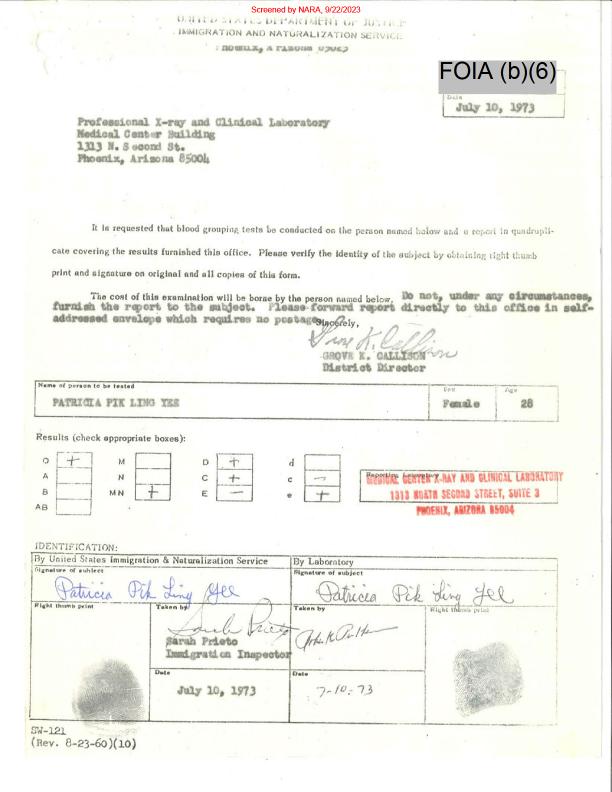 Screened by NARA, 9/22/2023
UNITED STATES DEPARTMENT OF JUSTICE
IMMIGRATION AND NATURALIZATION SERVICE
PHOENIX, ARIZONA 85025
FOIA (b)(6)
Date
July 10, 1973
Professional X-ray and Clinical Laboratory
Medical Center Building
1313 N. Second St.
Phoenix, Arizona 85004
It is requested that blood grouping tests be conducted on the person named below and a report in quadrupli-
cate covering the results furnished this office. Please verify the identity of the subject by obtaining right thumb
print and signature on original and all copies of this form.
The cost of this examination will be borne by the person named below. Do not, under any circumstances,
furnish the report to the subject. Please forward report directly to this office in self-
addressed envelope which requires no postage. Sincerely,
GROVE K. CALLISON
District Director
Name of person to be tested Sex Age
PATRICIA PIK LING YEE Female 28
Results (check appropriate boxes):
O + M D + d
A N C + c -
B MN + E - e +
AB
Reporting Laboratory
MEDICAL CENTER X-RAY AND CLINICAL LABORATORY
1313 NORTH SECOND STREET, SUITE 3
PHOENIX, ARIZONA 85004
IDENTIFICATION:
By United States Immigration & Naturalization Service By Laboratory
Signature of subject Signature of subject
Patricia Pik Ling Yee Patricia Pik Ling Yee
Right thumb print Taken by Taken by Right thumb print
Sarah Prieto
Sarah Prieto
Immigration Inspector
Date Date
July 10, 1973 7-10-73
SW-121
(Rev. 8-23-60)(10)